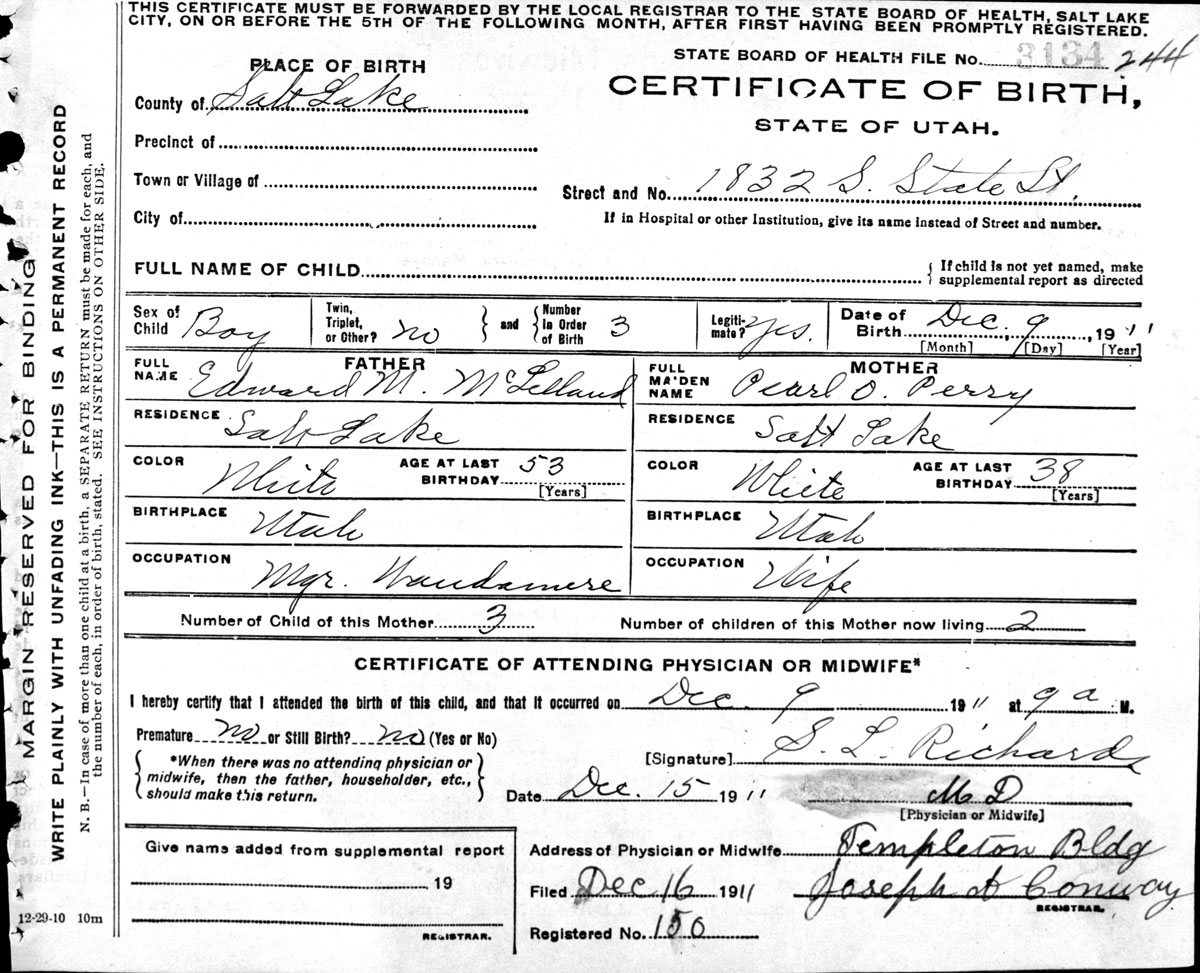 THIS CERTIFICATE MUST BE FORWARDED BY THE LOCAL REGISTRAR TO THE STATE BOARD OF HEALTH, SALT LAKE
CITY, ON OR BEFORE THE 5TH OF THE FOLLOWING MONTH, AFTER FIRST HAVING BEEN PROMPTLY REGISTERED.
STATE BOARD OF HEALTH FILE No. 3134 244
PLACE OF BIRTH
CERTIFICATE OF BIRTH,
STATE OF UTAH.
County of Salt Lake
Precinct of
Town or Village of
Street and No. 1832 S. State St.
City of
If in Hospital or other Institution, give its name instead of Street and number.
FULL NAME OF CHILD
{ If child is not yet named, make
supplemental report as directed
Sex of Child Boy
Twin, Triplet, or Other? no
} and { Number in Order of Birth 3
Legitimate? Yes.
Date of Birth Dec. 9, 1911
[Month] [Day] [Year]
FATHER
FULL NAME Edward M. McLelland
MOTHER
FULL MAIDEN NAME Pearl O. Perry
RESIDENCE Salt Lake
RESIDENCE Salt Lake
COLOR White AGE AT LAST BIRTHDAY 53 [Years]
COLOR White AGE AT LAST BIRTHDAY 38 [Years]
BIRTHPLACE Utah
BIRTHPLACE Utah
OCCUPATION Mgr. Wandamere
OCCUPATION Wife
Number of Child of this Mother 3 Number of children of this Mother now living 2
CERTIFICATE OF ATTENDING PHYSICIAN OR MIDWIFE*
I hereby certify that I attended the birth of this child, and that it occurred on Dec. 9 1911 at 9 a M.
Premature no or Still Birth? no (Yes or No)
{ *When there was no attending physician or
midwife, then the father, householder, etc.,
should make this return. }
[Signature] S. L. Richards
Date Dec. 15 1911
M D
[Physician or Midwife]
Give name added from supplemental report
19
REGISTRAR.
Address of Physician or Midwife Templeton Bldg
Filed Dec 16 1911 Joseph A Conway
REGISTRAR.
Registered No. 150
12-29-10 10m
MARGIN RESERVED FOR BINDING
WRITE PLAINLY WITH UNFADING INK—THIS IS A PERMANENT RECORD
N. B.—In case of more than one child at a birth, a SEPARATE RETURN must be made for each, and
the number of each, in order of birth, stated. SEE INSTRUCTIONS ON OTHER SIDE.